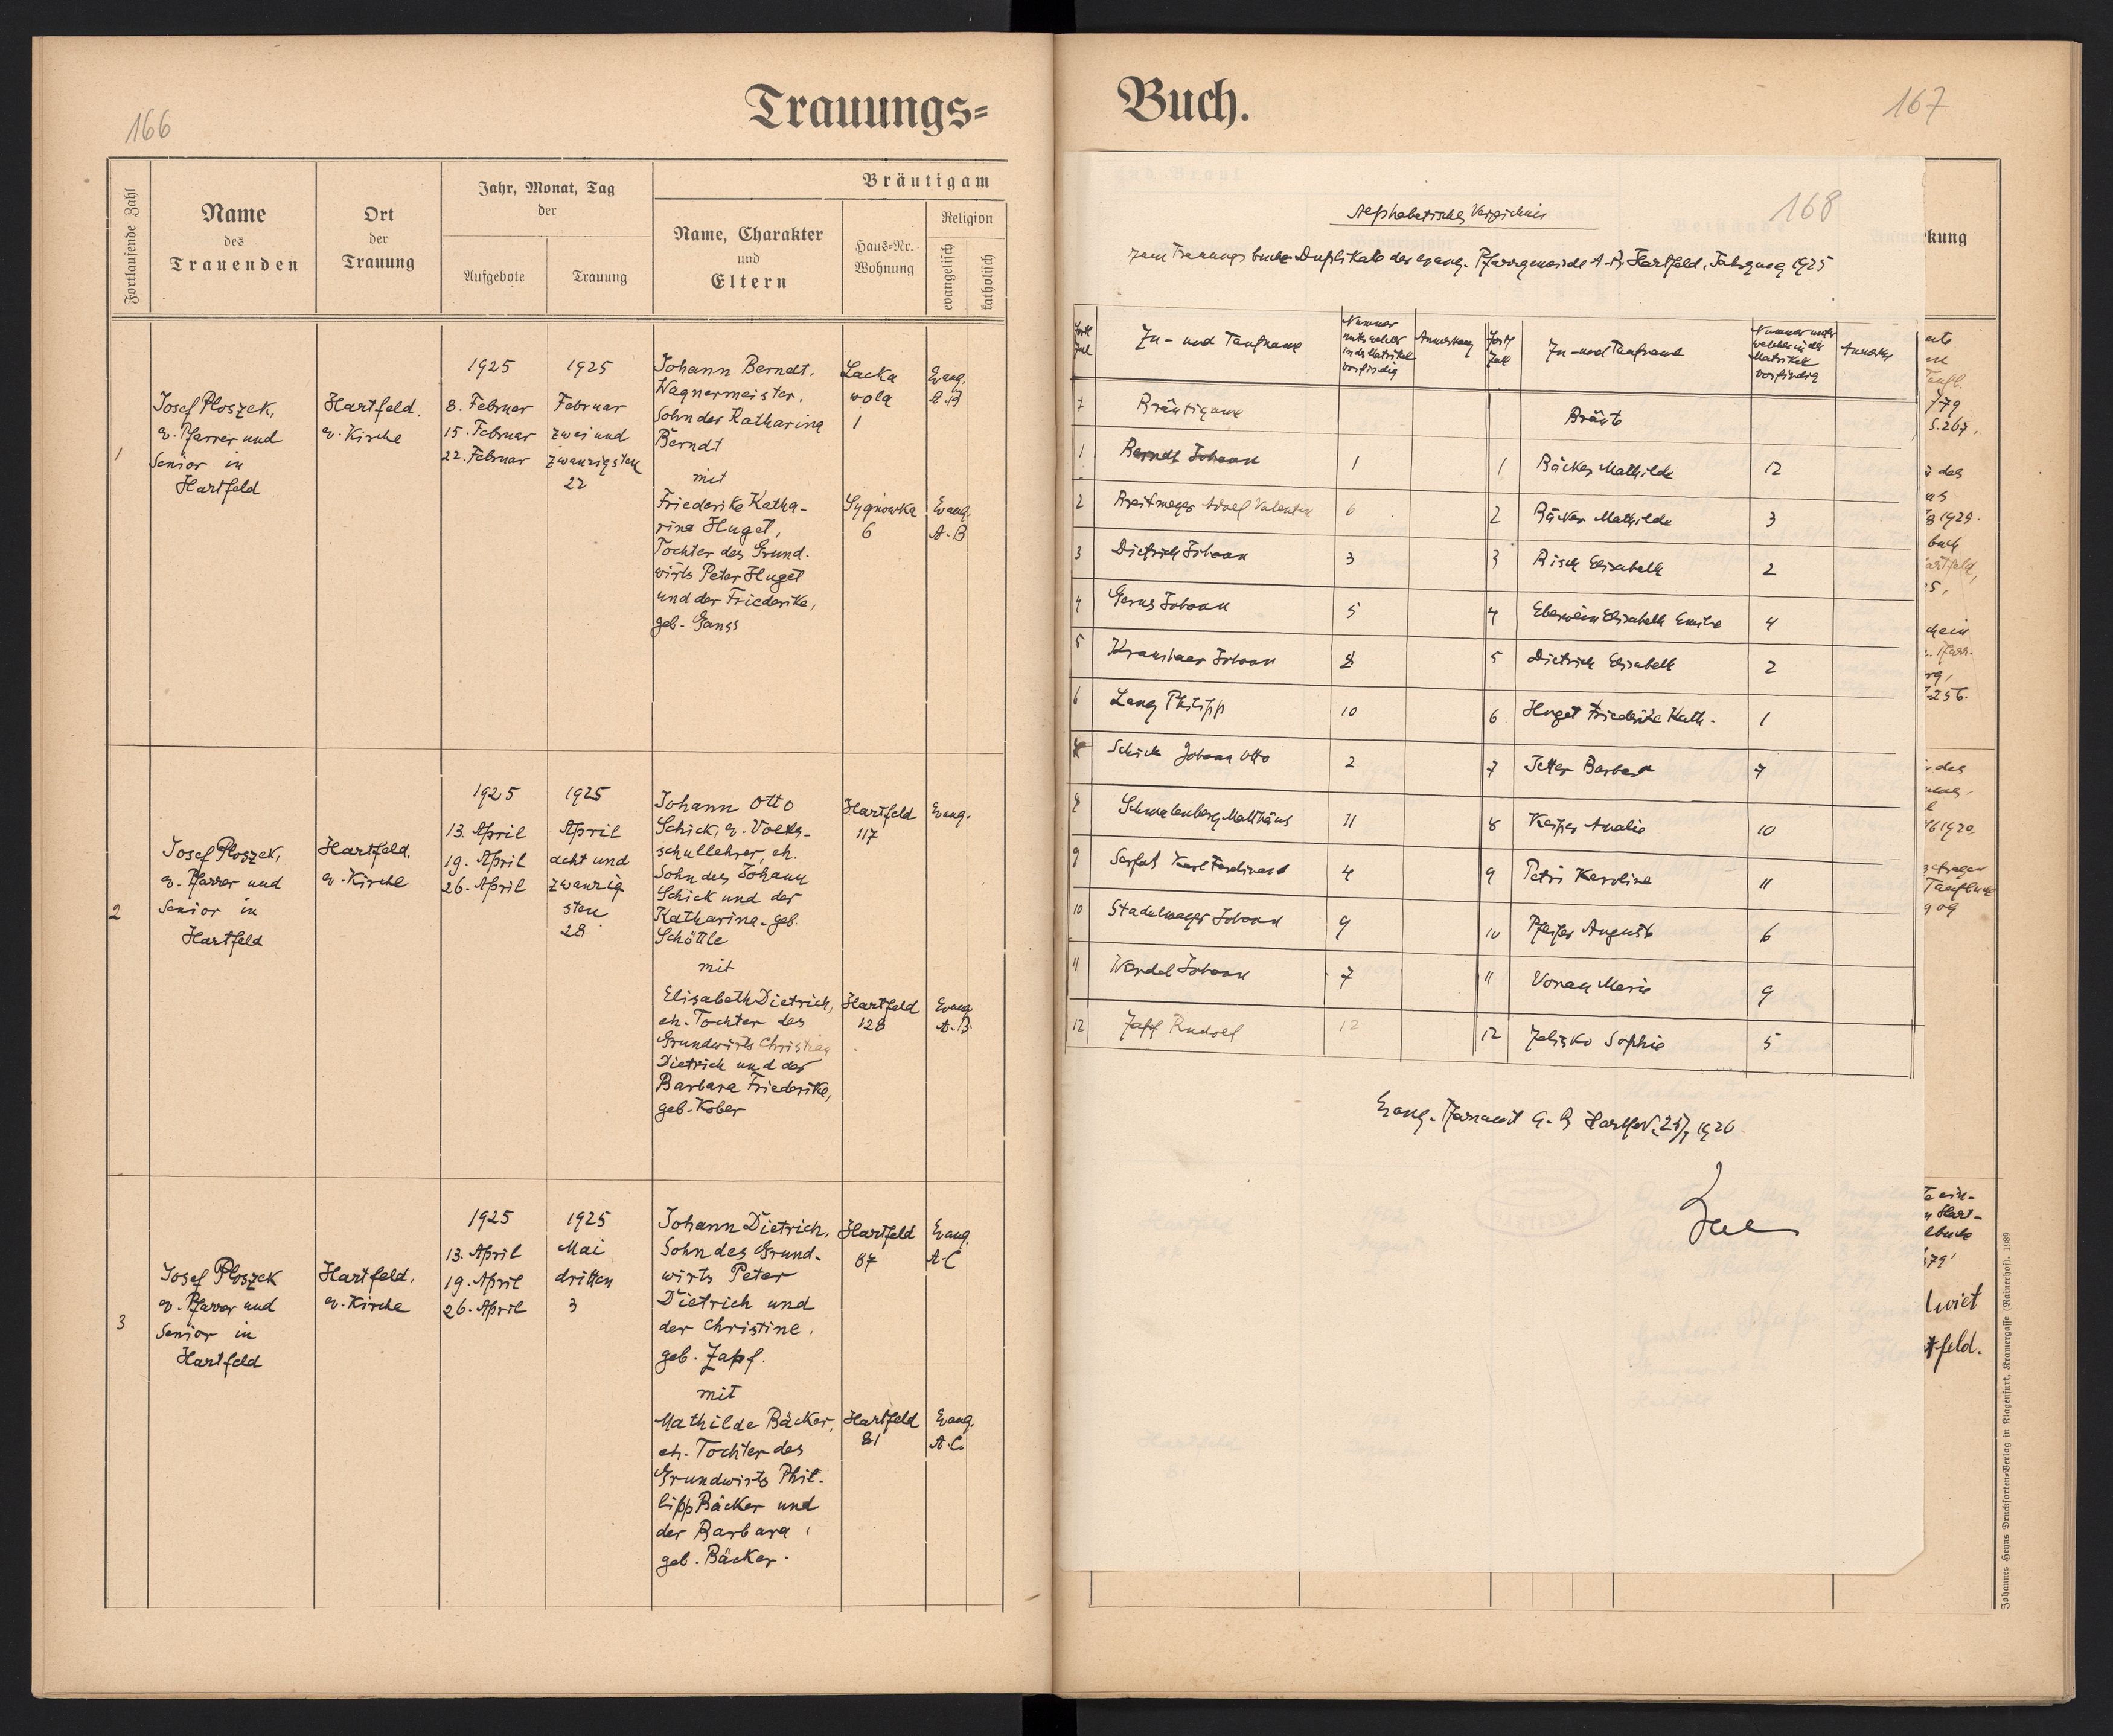 166
Trauungs=
Fortlaufende Zahl
Name
des
Trauenden
Ort
der
Trauung
Jahr, Monat, Tag
der
Aufgebote
Trauung
Bräutigam
Name, Charakter
und
Eltern
Haus=Nr.
Wohnung
Religion
evangelisch
katholisch
1
Josef Ploszek,
ev. Pfarrer und
Senior in
Hartfeld
Hartfeld,
ev. Kirche
1925
8. Februar
15. Februar
22. Februar
1925
Februar
zwei und
zwanzigsten
22
Johann Berndt,
Wagnermeister,
Sohn der Katharina
Berndt
mit
Friederike Katha-
rina Huget,
Tochter des Grund-
wirts Peter Huget
und der Friederike,
geb. Ganss
Lacka
wola
1
Sygniowka
6
Evang.
A.B
Evang.
A.B
2
Josef Ploszek,
ev. Pfarrer und
Senior in
Hartfeld
Hartfeld,
ev. Kirche
1925
13. April
19. April
26. April
1925
April
acht und
zwanzig
sten
28
Johann Otto
Schick, ev. Volks-
schullehrer, eh.
Sohn des Johann
Schick und der
Katharina, geb.
Schöttle
mit
Elisabeth Dietrich,
eh. Tochter des
Grundwirts Christian
Dietrich und der
Barbara Friederike,
geb. Kober
Hartfeld
117
Hartfeld
128
Evang.
Evang.
A.B.
3
Josef Ploszek
ev. Pfarrer und
Senior in
Hartfeld
Hartfeld,
ev. Kirche
1925
13. April
19. April
26. April
1925
Mai
dritten
3
Johann Dietrich,
Sohn des Grund-
wirts Peter
Dietrich und
der Christine,
geb. Zapf.
mit
Mathilde Bäcker,
eh. Tochter des
Grundwirts Phil-
lipp Bäcker und
der Barbara,
geb. Bäcker.
Hartfeld
87
Hartfeld
81
Evang.
A.C
Evang.
A.C.
Buch.
167
168
Alphabetisches Verzeichnis
zum Trauungsbuchs-Duplikate der evang. Pfarrgemeinde A.B. Hartfeld, Jahrgang 1925
Fortl Zal
Zu- und Taufname
Nummer unter welcher in der Matrikel vorfindig
Anmerkung
Fortl Zall
Zu- und Taufname
Nummer unter welcher in der Matrikel vorfindig
Anmerkg
Bräutigame
Bräute
1 Berndt Johann 1
1 Bäcker Mathilde 12
2 Breitmeyer Adolf Valentin 6
2 Bäcker Mathilde 3
3 Dietrich Johann 3
3 Risch Elisabeth 2
4 Johann 5
4 Elisabeth Emilie 4
5 Johann 8
5 Dietrich Elisabeth 2
6 Lang Philipp 10
6 Huget Friederike Kath. 1
Schick Johann Otto 2
7 Barbara 7
8 Schmalenberg Matthäus 11
8 Keiper Amalie 10
9 Karl Ferdinand 4
9 Petri Karoline 11
10 Stadelmayer Johann 9
10 Pfeifer Auguste 6
11 Wendel Johann 7
11 Vonau Marie 9
12 Zapf Rudolf 12
12 Zelisko Sophie 5
Evang. Pfarramt A.B Hartfeld, 25/1 1926
kung
179
S. 267.
des
1925.
buch
artfeld,
chein
256.
des
1920.
Taufbuch
909
ein-
Hart-
179
feld.
Johannes Heyns Drucksorten=Verlag in Klagenfurt, Kramergasse (Rainerhof). 1989